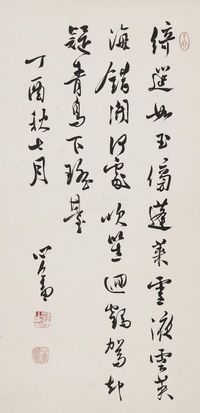 綺筵如玉傍蓬萊靈液雲英
海錯開何處吹笙迴鶴駕却
疑青鳥下瑤臺
丁酉秋七月
心畬